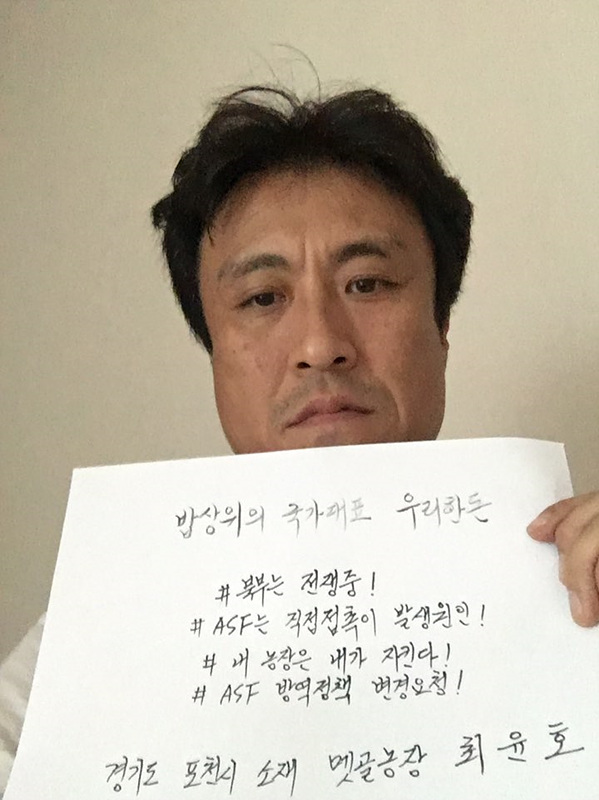 밥상위의 국가대표 우리한돈
#북부는 전쟁중!
# ASF는 직접접촉이 발생원인!
# 내 농장은 내가 지킨다!
# ASF 방역정책 변경요청!
경기도 포천시 소재 멧골농장 최윤호